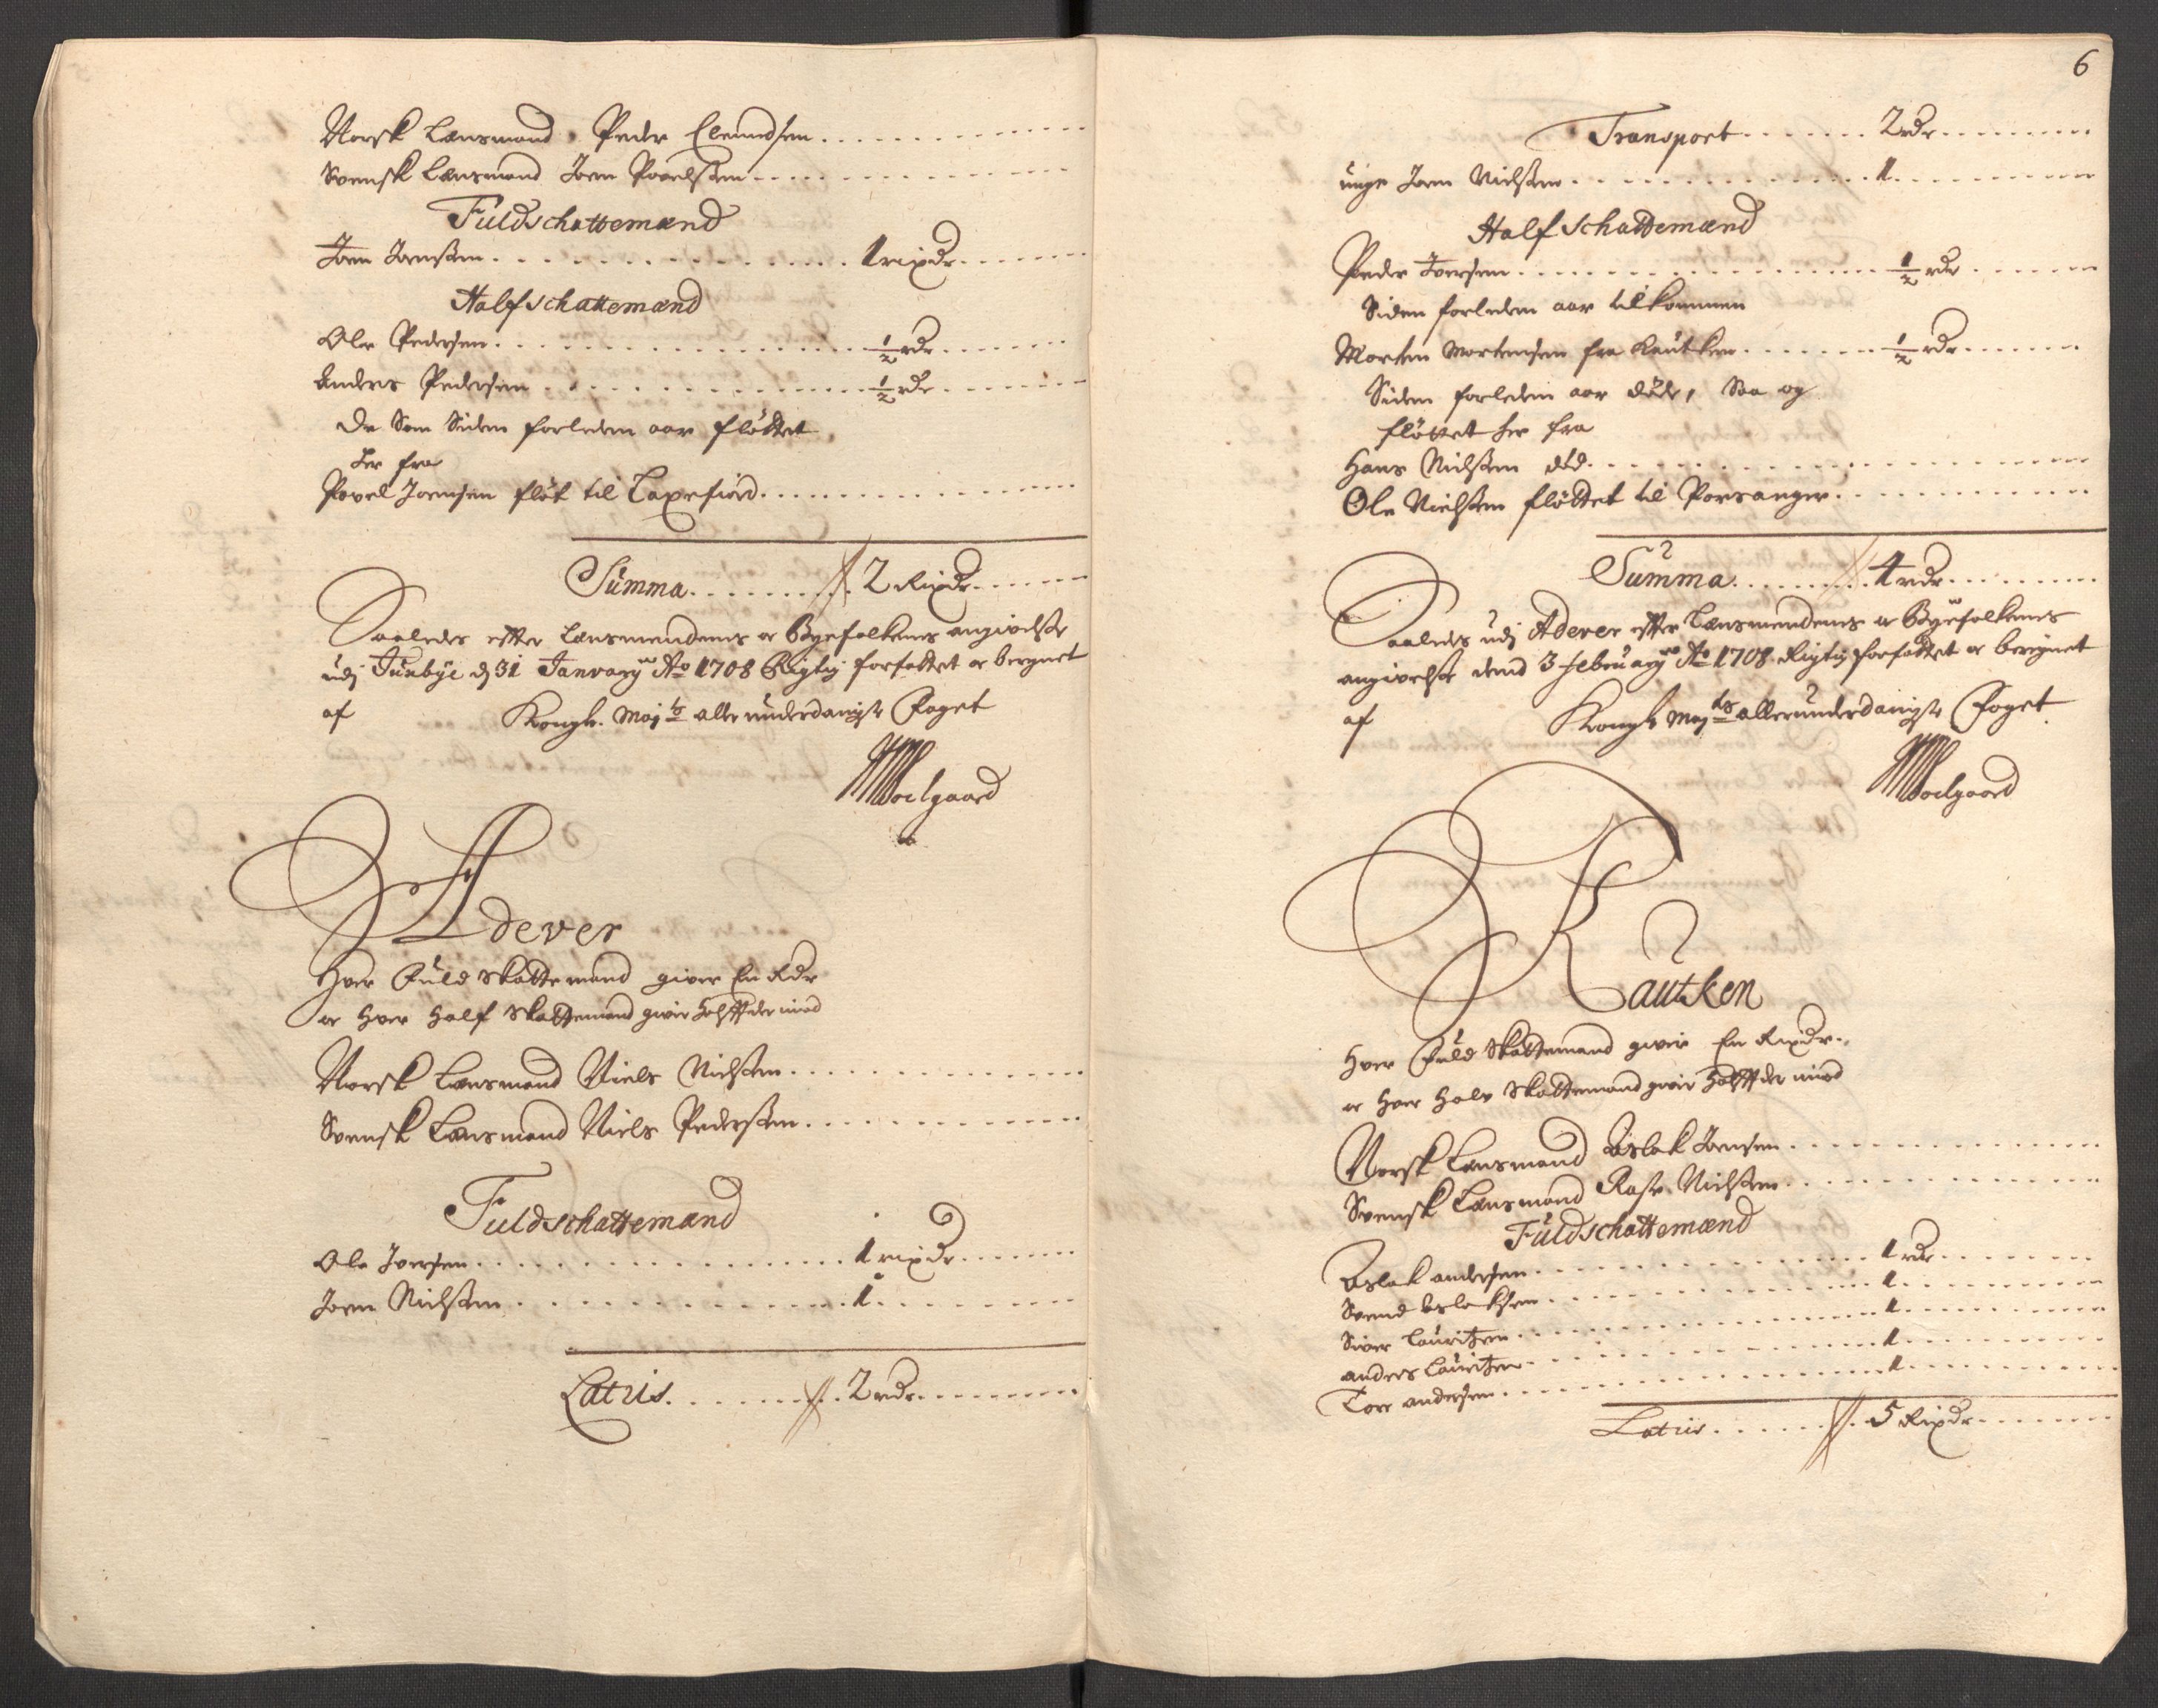 Norsk Lensmand Peder Clemedsen
Svensk Lensmand Joen Povelssen
Fuldschattemænd
Joen Joenssen 1 rixdr
Halfschattemænd
Ole Pedersen ½ rdr
Anders Pedersen ½ rdr
De Som Siden forleden aar fløttet
her fra
Povel Joensen fløt til Laxefiord
Summa 2 Rixdr
Saaledes effter Lensmendenes oc Byefolkenes angivelsse
udj Juxbye d 31 Januarij Ao 1708 Rigtig forfattet oc beregnet
af Kongl. Majts allerunderdanigste Foget
Soelgaard
Adever
Hver Fuld Skattemand giver En Rdr
oc hver half Skattemand giver Halfft der imod
Norsk Lensmand Niels Nielssen
Svensk Lensmand Niels Pederssen
Fuldschattemænd
Ole Iversen 1 rixdr
Joen Nielssen 1
Latus 2 rdr
6
Transport 2 rdr
unge Joen Nielssen 1
Half Schattemænd
Peder Iversen ½ rdr
Siden forleden aar tilkommen
Morten Mortensen fra Kautken ½ rdr
Siden forleden aar døde, Saa og
fløttet her fra
Hans Nielssen død
Ole Nielssen fløttet til Porsanger
Summa 4 rdr
Saaledes udj Adever effter Lensmendenes oc Byefolkenes
angivelsse dend 3 Februarij Ao 1708 Rigtig forfattet oc beregnet
af Kongl Majts allerunderdanigste Foget
Soelgaard
Kautken
Hver Fuld Skattemand giver En Rixdr.
oc hver halv Skattemand giver Halfft der imod
Norsk Lensmand Aslak Joensen
Svensk Lensmand Rast Nielssen
Fuldschattemænd
Aslak andersen 1 rdr
Svend Aslaksen 1
Siver Lauritzen 1
anders Lauritzen 1
Tore andersen 1
Latus 5 Rixdr